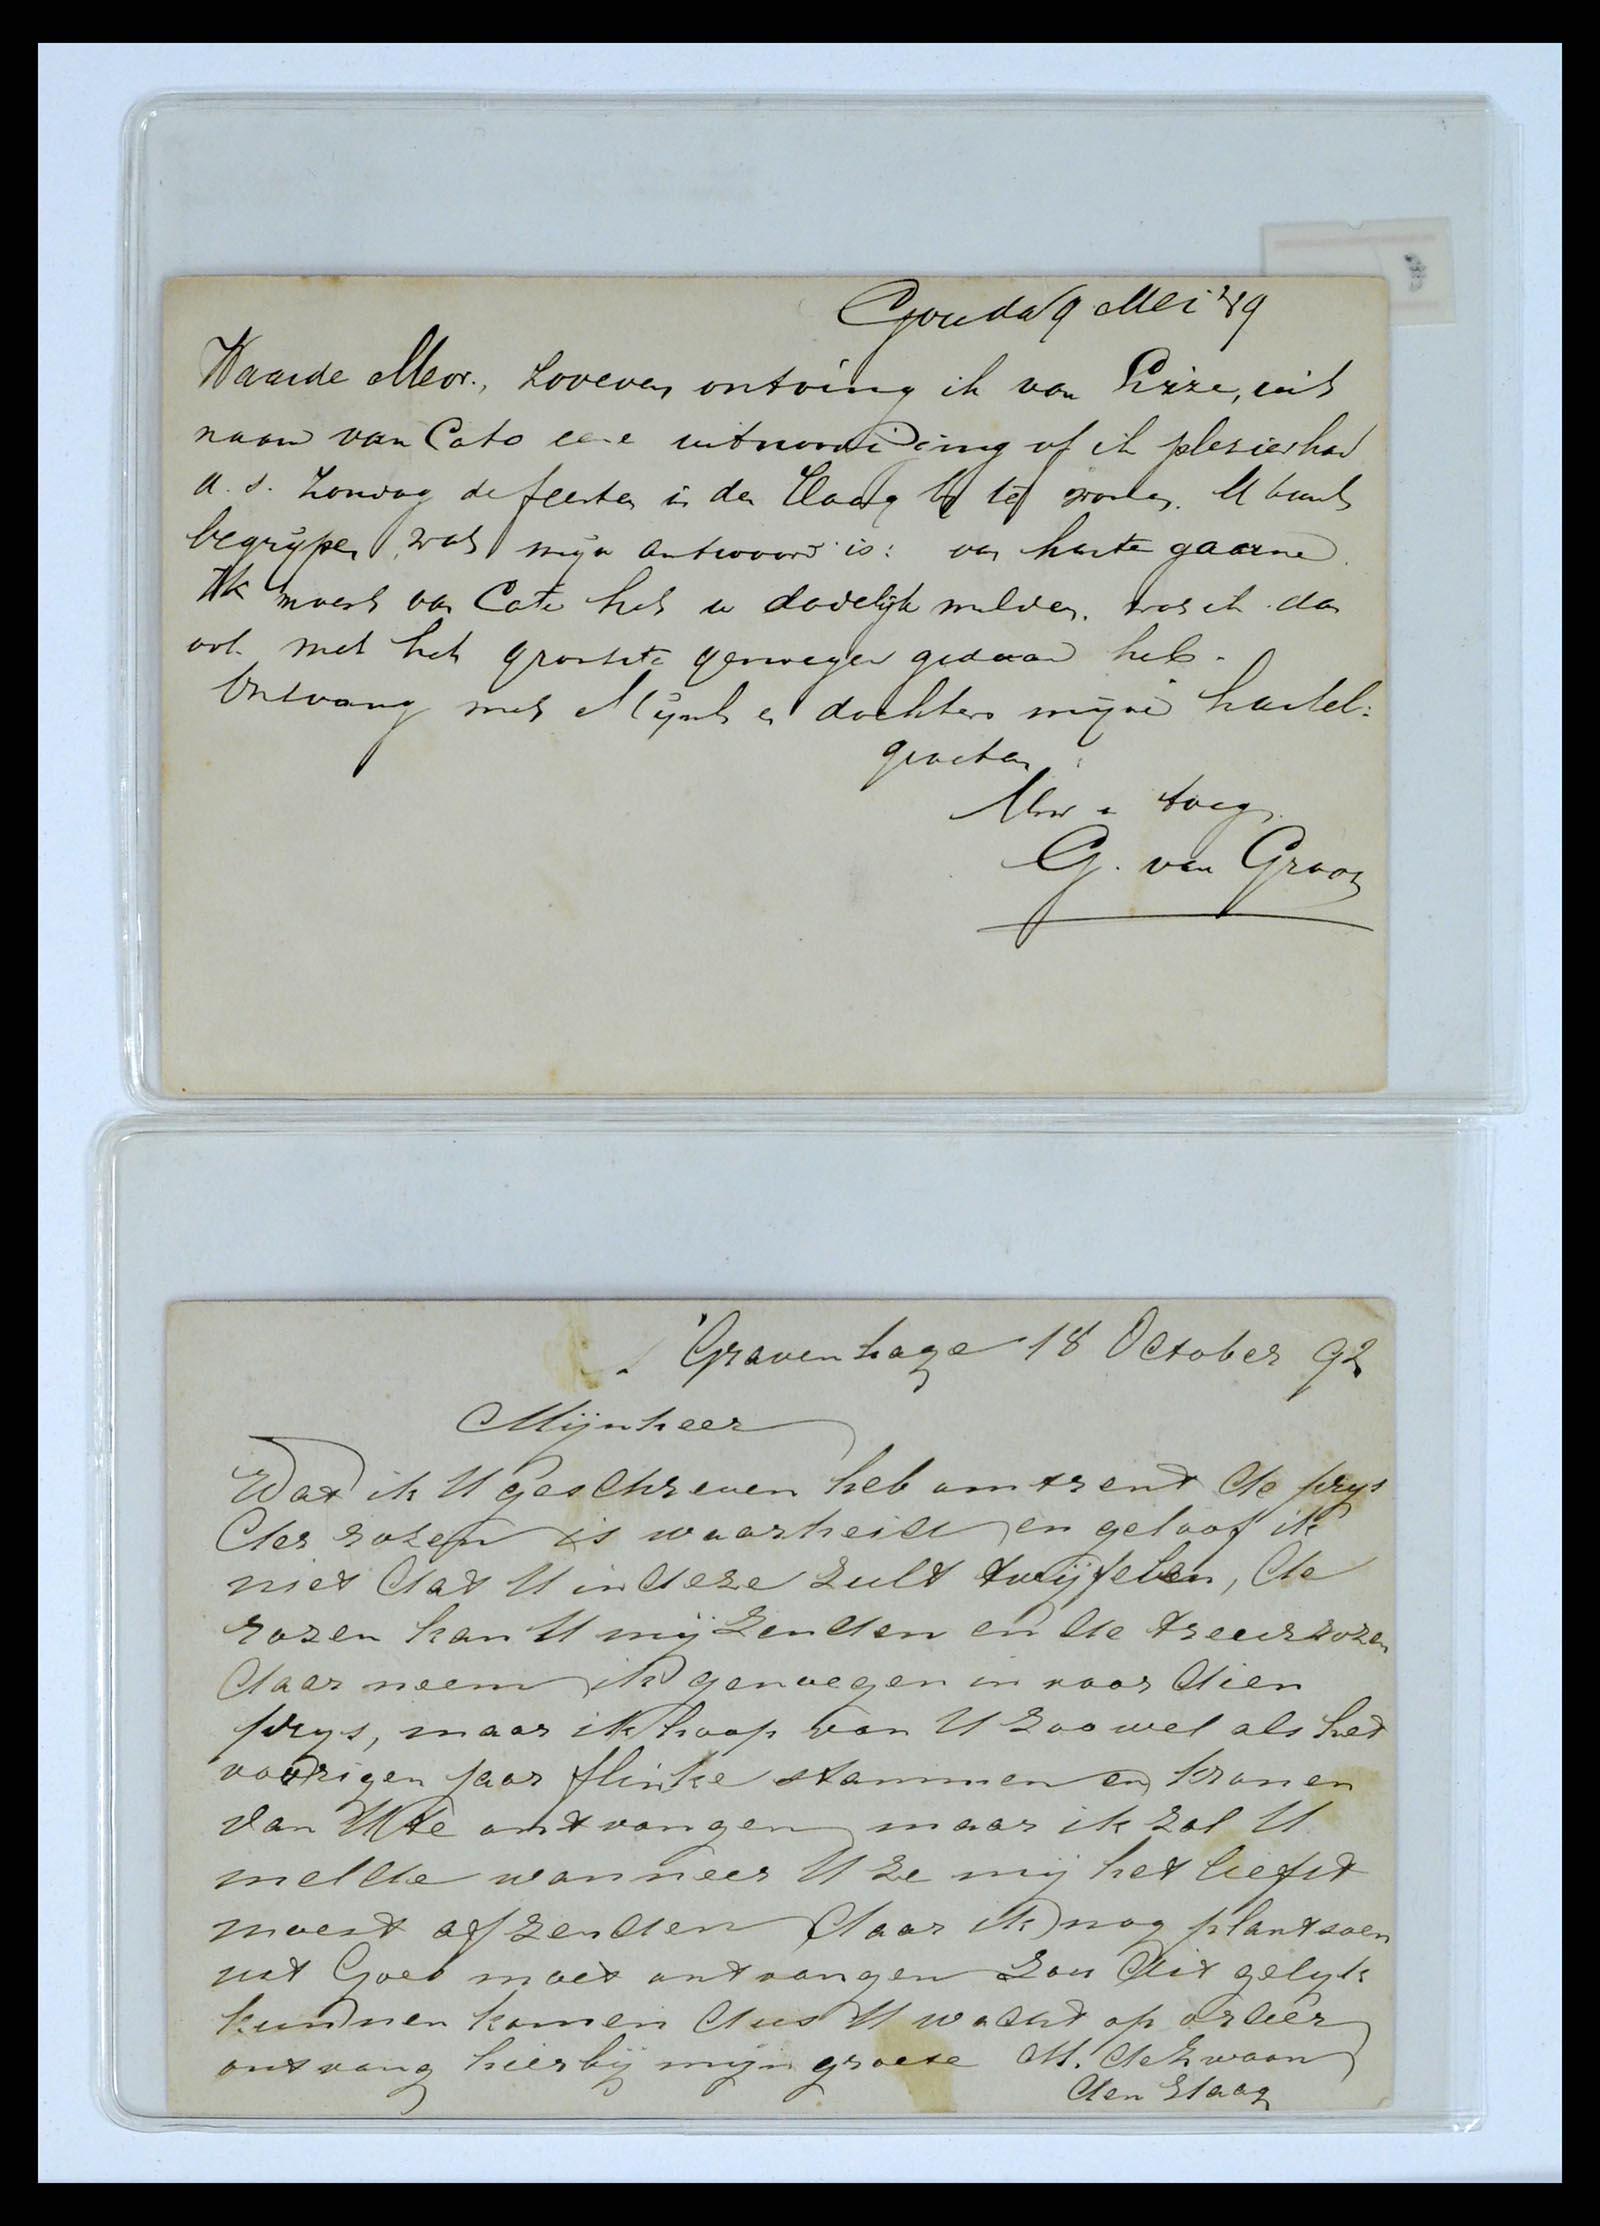 Gouda 9 Mei '89
Waarde Mevr., Zoveven ontving ik van Lizze, uit
naam van Cato eene uitnoodiging of ik plezier had
a. s. Zondag de feesten in den Haag bij te wonen. U kunt
begrijpen, wat mijn antwoord is: van harte gaarne.
Ik moest van Cato het u dadelijk melden, wat ik dan
ook met het grootste genoegen gedaan heb.
Ontvang met Mijnh en dochters mijne hartel:
groeten
G. van
's Gravenhage 18 October 92
Mijnheer
Wat ik U geschreven heb omtrent de prijs
der rozen is waarheid en geloof ik
niet dat U in deze zult twijfelen, de
rozen kan U mij zenden en de treurrozen
daar neem ik genoegen in voor dien
prys, maar ik hoop van U zoo wel als het
voorigen jaar flinke stammen en kronen
van U te ontvangen maar ik zal U
melde wanneer U ze mij het liefst
moest afzenden daar ik nog plantsoen
uit Goes moet ontvangen zou dit gelijk
kunnen komen dus U wacht op order
ontvang hierbij mijn groete M. de Zwaan
den Haag